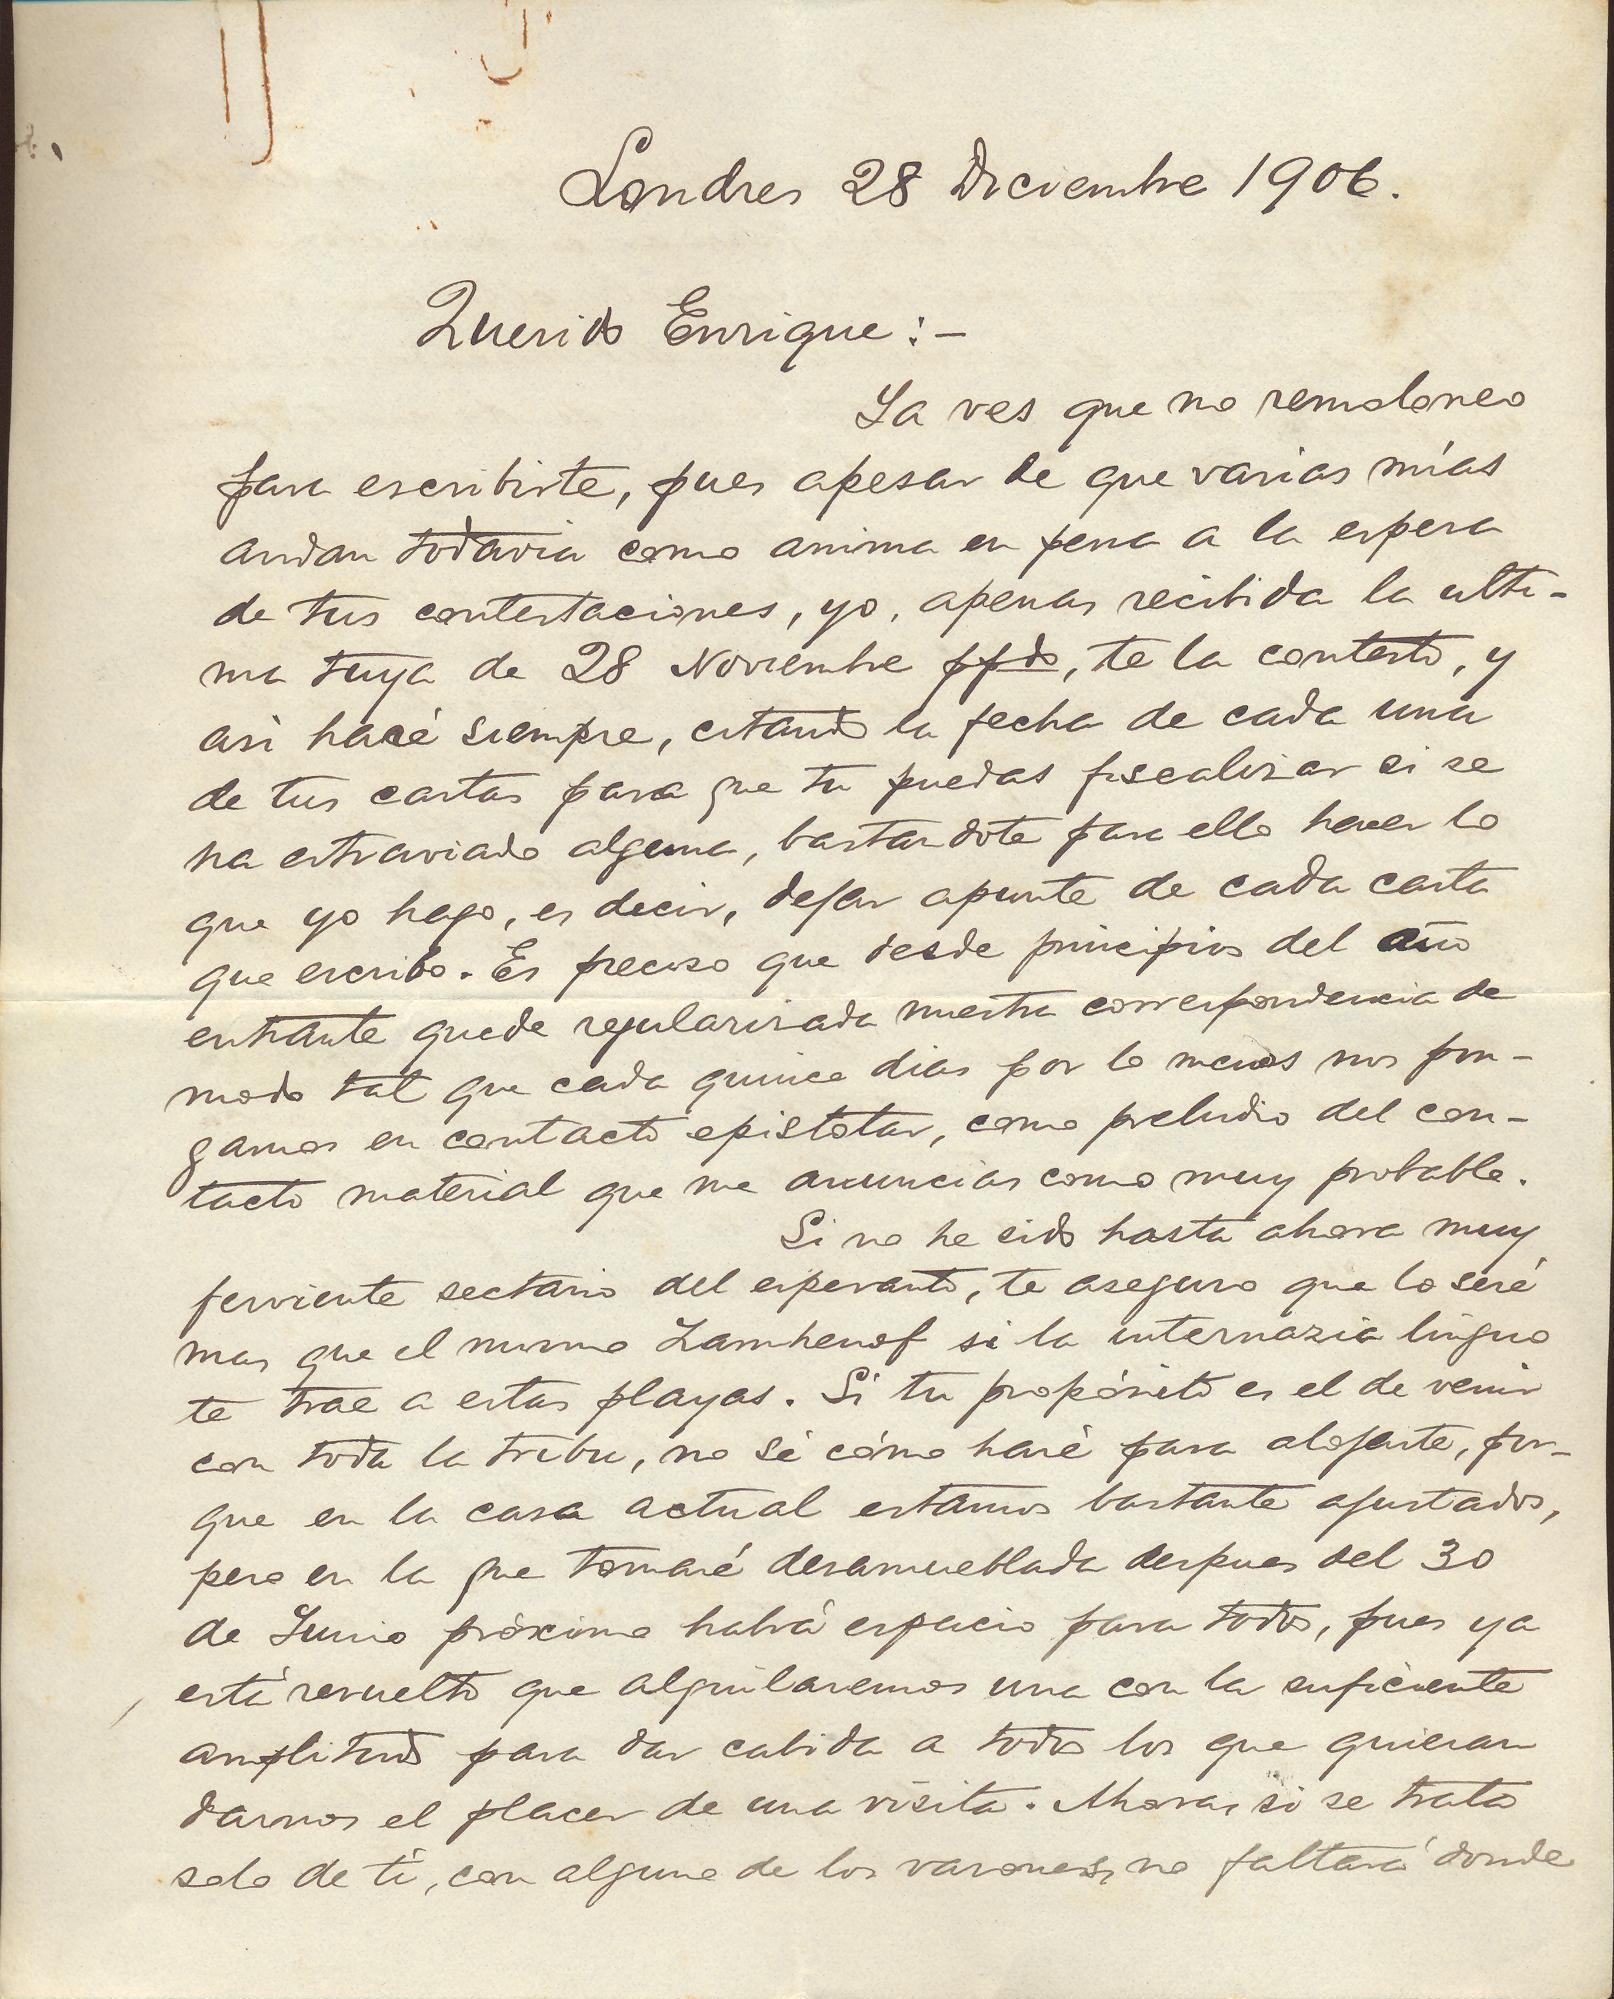 Londres 28 Diciembre 1906.
Querido Enrique:-
Ya ves que no remoloneo
para escribirte, pues apesar de que varias mías
andan todavia como anima en pena a la espera
de tus contestaciones, yo, apenas recibida la ulti-
ma tuya de 28 Noviembre ppdo, te la contesto, y
asi hacé siempre, citando la fecha de cada una
de tus cartas para que tu puedas fiscalizar si se
ha estraviado alguna, bastandote para ello hacer lo
que yo hago, es decir, dejar apunte de cada carta
que escribo. Es preciso que desde principios del año
entrante quede regularizada nuestra correspondencia de
modo tal que cada quince dias por lo menos nos pon-
gamos en contacto epistolar, como preludio del con-
tacto material que me anuncias como muy probable.
Si no he sido hasta ahora muy
ferviente sectario del esperanto, te aseguro que lo seré
mas que el mismo Zamhenof si la internazia linguo
te trae a estas playas. Si tu propósito es el de venir
con toda la tribu, no sé cómo haré para alojarte, por-
que en la casa actual estamos bastante ajustados,
pero en la que tomaré desamueblada despues del 30
de Junio próximo habrá espacio para todos, pues ya
está resuelto que alquilaremos una con la suficiente
amplitud para dar cabida a todos los que quieran
darnos el placer de una visita. Ahora, si se trata
solo de ti, con alguno de los varones, no faltará donde